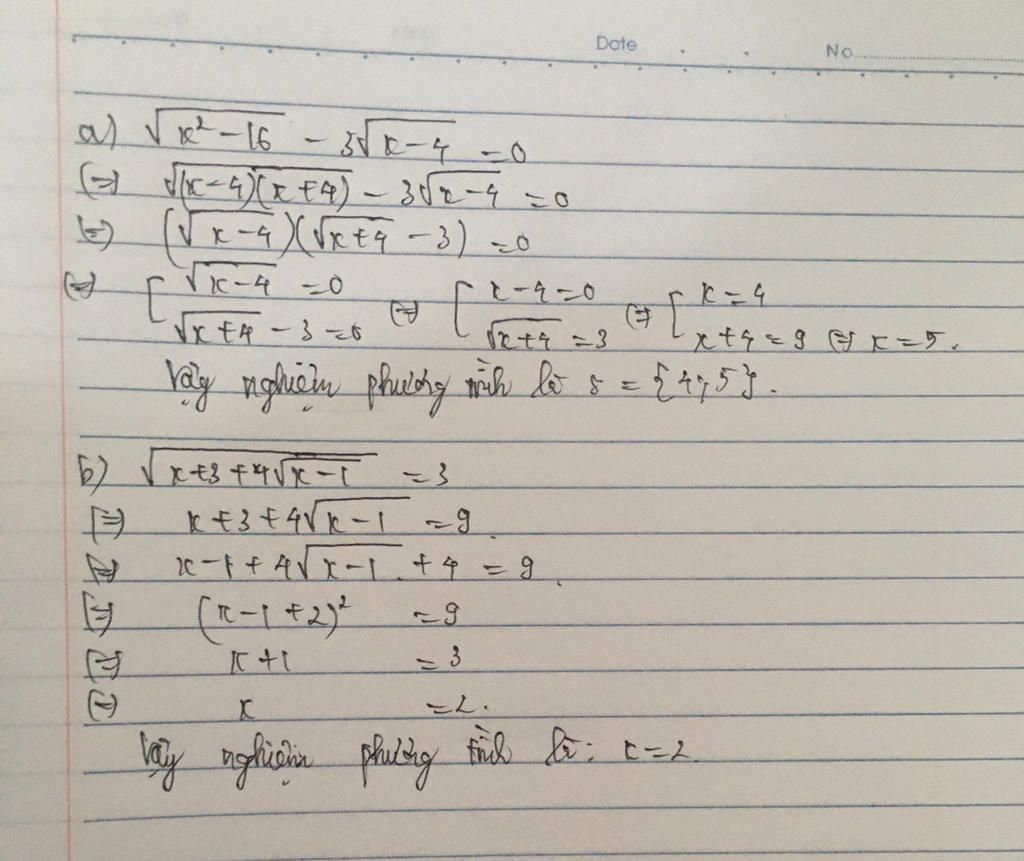 Date No
a) √(x²-16) - 3√(x-4) = 0
(=) √((x-4)(x+4)) - 3√(x-4) = 0
(=) (√(x-4))(√(x+4) - 3) = 0
(=) [ √(x-4) = 0 (=) [ x-4=0 (=) [ x=4
√(x+4) - 3 = 0 √(x+4) = 3 x+4=9 (=) x=5.
Vậy nghiệm phương trình là S = {4;5}.
b) √(x+3+4√(x-1)) = 3
(=) x+3+4√(x-1) = 9
(=) x-1+4√(x-1) + 4 = 9
(=) (x-1+2)² = 9
(=) x+1 = 3
(=) x = 2.
Vậy nghiệm phương trình là: x=2